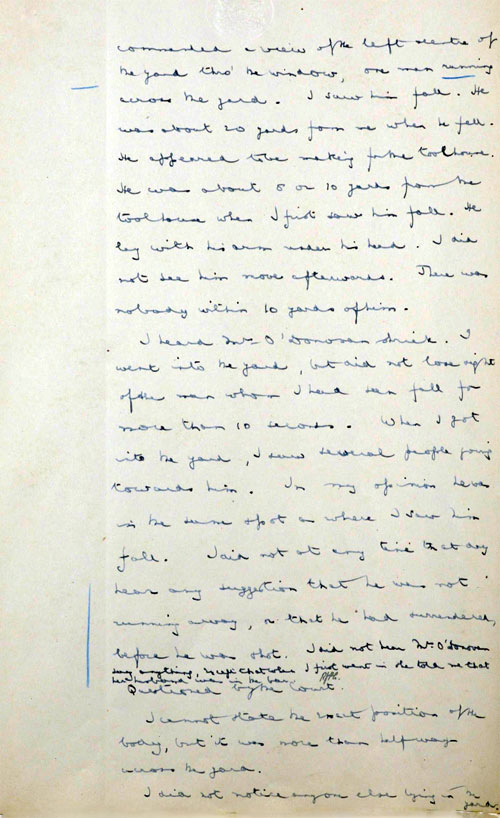 commanded a view of the left centre of
the yard thro' the window, one man running
across the yard. I saw him fall. He
was about 20 yards from me when he fell.
He appeared to be making for the toolhouse.
He was about 8 or 10 yards from the
toolhouse when I first saw him fall. He
lay with his arm under his head. I did
not see him move afterwards. There was
nobody within 10 yards of him.
I heard Mrs O'Donovan shriek. I
went into the yard, but did not lose sight
of the man whom I had seen fall for
more than 10 seconds. When I got
into the yard, I saw several people going
towards him. In my opinion he was
in the same spot as where I saw him
fall. I did not at any time that day
hear any suggestion that he was not
running away, or that he had surrendered,
before he was shot. I did not hear Mrs O'Donovan
say anything, except that when I first went in she told me that
her husband was in the bar.
Questioned by the Court.
I cannot state the exact position of the
body, but it was more than halfway
across the yard.
I did not notice anyone else lying in the
yard.